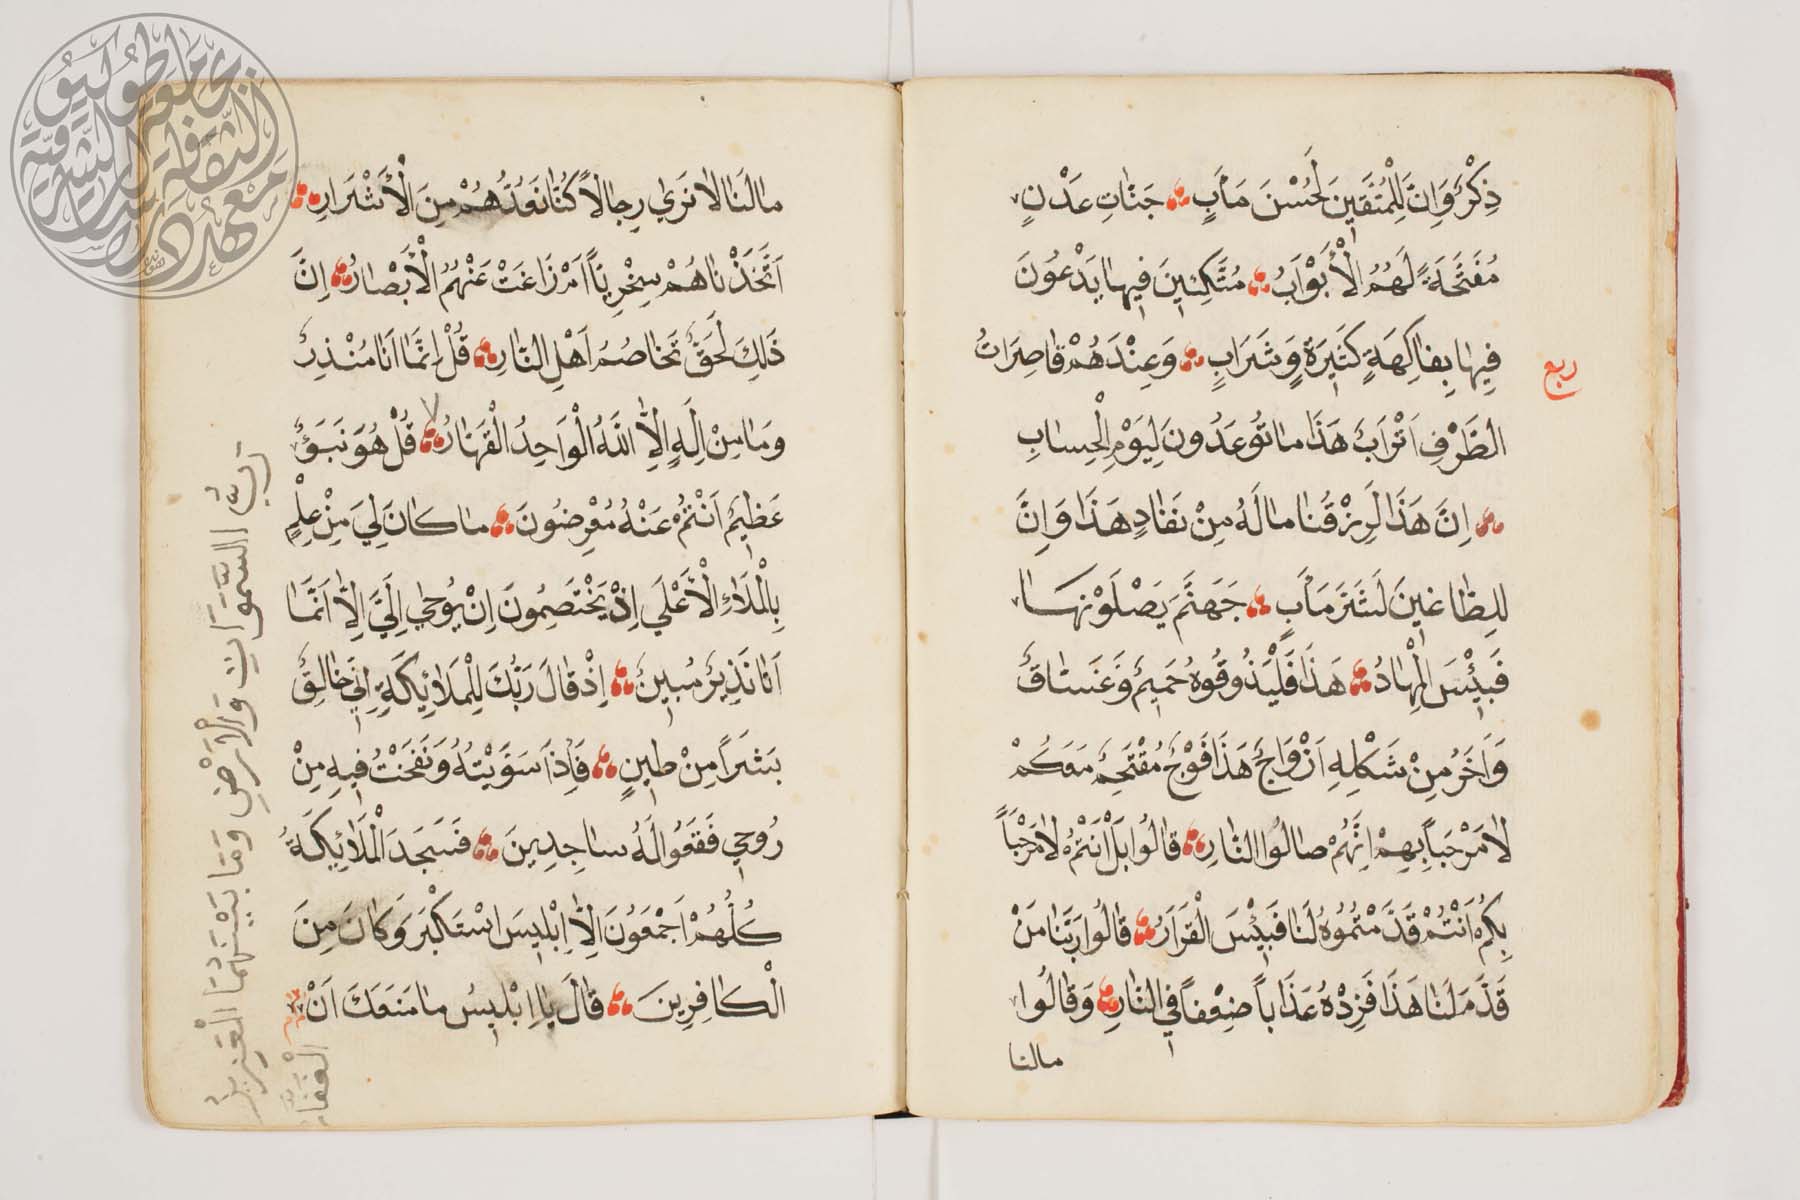 ذِكْرٌ وَاِنَّ لِلْمُتَّقِينَ لَحُسْنَ مَاٰبٍ جَنَّاتِ عَدْنٍ
مُفَتَّحَةً لَهُمُ الْاَبْوَابُ مُتَّكِئِينَ فِيهَا يَدْعُونَ
فِيهَا بِفَاكِهَةٍ كَثِيرَةٍ وَشَرَابٍ وَعِنْدَهُمْ قَاصِرَاتُ
ربع
الطَّرْفِ اَتْرَابٌ هَذَا مَا تُوعَدُونَ لِيَوْمِ الْحِسَابِ
اِنَّ هَذَا لَرِزْقُنَا مَا لَهُ مِنْ نَفَادٍ هَذَا وَاِنَّ
لِلطَّاغِينَ لَشَرَّ مَاٰبٍ جَهَنَّمَ يَصْلَوْنَهَا
فَبِئْسَ الْمِهَادُ هَذَا فَلْيَذُوقُوهُ حَمِيمٌ وَغَسَّاقٌ
وَاٰخَرُ مِنْ شَكْلِهِ اَزْوَاجٌ هَذَا فَوْجٌ مُقْتَحِمٌ مَعَكُمْ
لَا مَرْحَبًا بِهِمْ اِنَّهُمْ صَالُوا النَّارِ قَالُوا بَلْ اَنْتُمْ لَا مَرْحَبًا
بِكُمْ اَنْتُمْ قَدَّمْتُمُوهُ لَنَا فَبِئْسَ الْقَرَارُ قَالُوا رَبَّنَا مَنْ
قَدَّمَ لَنَا هَذَا فَزِدْهُ عَذَابًا ضِعْفًا فِي النَّارِ وَقَالُوا
مالنا
مَا لَنَا لَا نَرَى رِجَالًا كُنَّا نَعُدُّهُمْ مِنَ الْاَشْرَارِ
اَتَّخَذْنَاهُمْ سِخْرِيًّا اَمْ زَاغَتْ عَنْهُمُ الْاَبْصَارُ اِنَّ
ذَلِكَ لَحَقٌّ تَخَاصُمُ اَهْلِ النَّارِ قُلْ اِنَّمَا اَنَا مُنْذِرٌ
وَمَا مِنْ اِلَهٍ اِلَّا اللّٰهُ الْوَاحِدُ الْقَهَّارُ قُلْ هُوَ نَبَؤٌ
عَظِيمٌ اَنْتُمْ عَنْهُ مُعْرِضُونَ مَا كَانَ لِيَ مِنْ عِلْمٍ
بِالْمَلَاءِ الْاَعْلَى اِذْ يَخْتَصِمُونَ اِنْ يُوحَى اِلَيَّ اِلَّا اَنَّمَا
اَنَا نَذِيرٌ مُبِينٌ اِذْ قَالَ رَبُّكَ لِلْمَلَائِكَةِ اِنِّي خَالِقٌ
بَشَرًا مِنْ طِينٍ فَاِذَا سَوَّيْتُهُ وَنَفَخْتُ فِيهِ مِنْ
رُوحِي فَقَعُوا لَهُ سَاجِدِينَ فَسَجَدَ الْمَلَائِكَةُ
كُلُّهُمْ اَجْمَعُونَ اِلَّا اِبْلِيسَ اسْتَكْبَرَ وَكَانَ مِنَ
الْكَافِرِينَ قَالَ يَا اِبْلِيسُ مَا مَنَعَكَ اَنْ
رَبُّ السَّمَوَاتِ وَالْاَرْضِ وَمَا بَيْنَهُمَا الْعَزِيزُ
الْغَفَّارُ